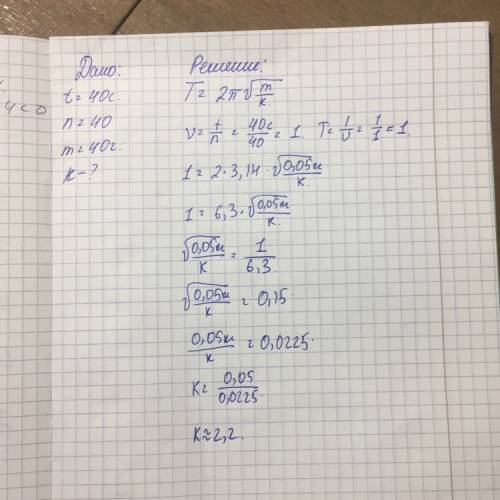 Дано:
t = 40с.
n = 40
m = 40г.
k - ?
Решение:
T = 2π√m/k.
ν = t/n = 40с/40 = 1. T = 1/ν = 1/1 = 1.
1 = 2 · 3,14 · √0,05/k.
1 = 6,3 · √0,05кг/k.
√0,05кг/k = 1/6,3.
√0,05кг/k = 0,15
0,05кг/k = 0,0225.
K = 0,05/0,0225.
K ≈ 2,2.